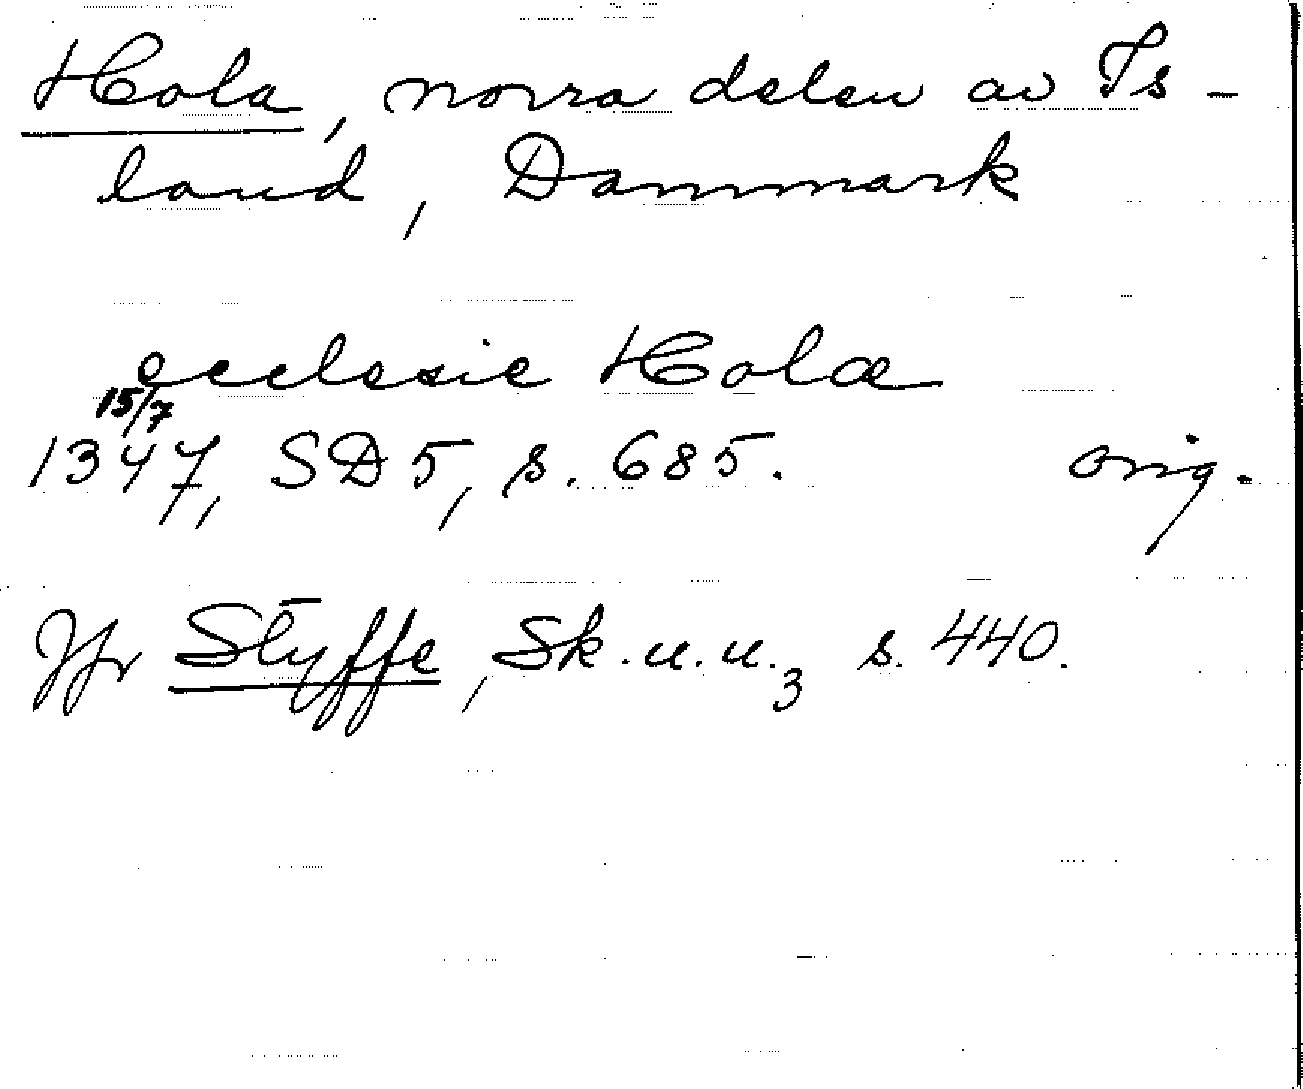 Hola, norra delen av Is-
land, Danmark
ecclesie Holæ
15/7
1347, SD 5, s. 685. orig.
Jfr Styffe, Sk.u.u.3 s. 440.